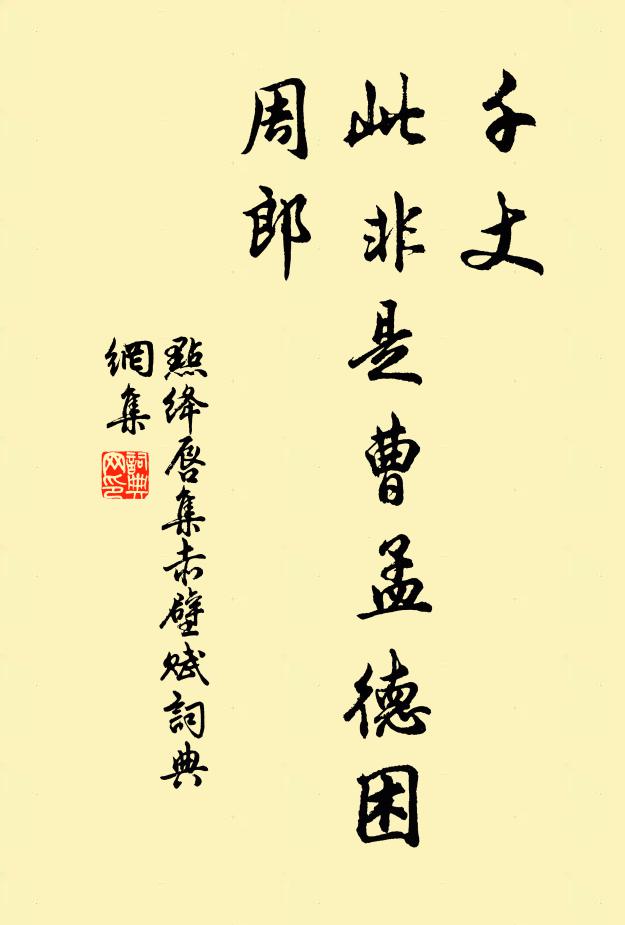 千丈
此非是曹孟德困
周郎
點绛唇集赤壁赋詞典
網集
詞典网印